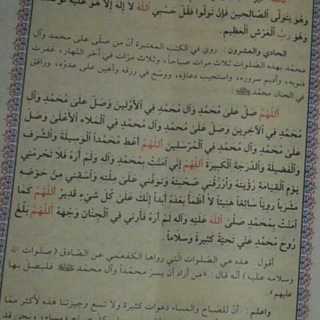 وهو يتولى الصالحين فإن تولوا فقل حسبي الله لا إله إلا هو عليه
وهو رب العرش العظيم.
الحادي والعشرون: روي في الكتب المعتبرة أنّ من صلى على محمد وآل
محمد بهذه الصلوات ثلاث مرات صباحاً، وثلاث مرّات في آخر النهار، غفرت
ذنوبه، وأديم سروره، واستجيب دعاؤه، ووسع في رزقه وأعين على عدوّه، ورافق
في الجنان محمد
اَللّهُمَّ صَلِّ عَلى مُحَمَّدٍ وَآلِ مُحَمَّدٍ فِي الأَوَّلِينَ وَصَلِّ عَلى مُحَمَّدٍ وَآلِ
مُحَمَّدٍ فِي الآخِرِينَ وَصَلِّ عَلى مُحَمَّدٍ وَآلِ مُحَمَّدٍ فِي المَلَأِ الأَعْلى وَصَلِّ
عَلى مُحَمَّدٍ وَآلِ مُحَمَّدٍ فِي المُرْسَلِينَ اَللّهُمَّ أَعْطِ مُحَمَّداً الوَسِيلَةَ وَالشَّرَفَ
وَالفَضِيلَةَ وَالدَّرَجَةَ الكَبِيرَةَ اَللّهُمَّ إِنِّي آمَنْتُ بِمُحَمَّدٍ وَآلِهِ وَلَمْ أَرَهُ فَلا تَحْرِمْنِي
يَوْمَ القِيامَةِ رُؤْيَتَهُ وَارْزُقْنِي صُحْبَتَهُ وَتَوَفَّنِي عَلى مِلَّتِهِ وَاسْقِنِي مِنْ حَوْضِهِ
مَشْرَباً رَوِيّاً سائِغاً هَنِيئاً لا أَظْمَأُ بَعْدَهُ أَبَداً إِنَّكَ عَلى كُلِّ شَيْءٍ قَدِيرٌ اَللّهُمَّ كَما
آمَنْتُ بِمُحَمَّدٍ صَلَّى اللهُ عَلَيْهِ وَآلِهِ وَلَمْ أَرَهُ فَأَرِنِي فِي الجِنانِ وَجْهَهُ اَللّهُمَّ بَلِّغْ
رُوحَ مُحَمَّدٍ عَنِّي تَحِيَّةً كَثِيرَةً وَسَلاماً.
أقول: هذه هي الصلوات التي رواها الكفعمي عن الصادق (صلوات الله
وسلامه عليه) أنه قال: «من أراد أن يسرّ محمداً وآل محمد ﷺ فليصل بها
عليهم».
واعلم: أنّ للصباح والمساء دعوات كثيرة ولا تسع وجيزتنا هذه لأكثر ممّا